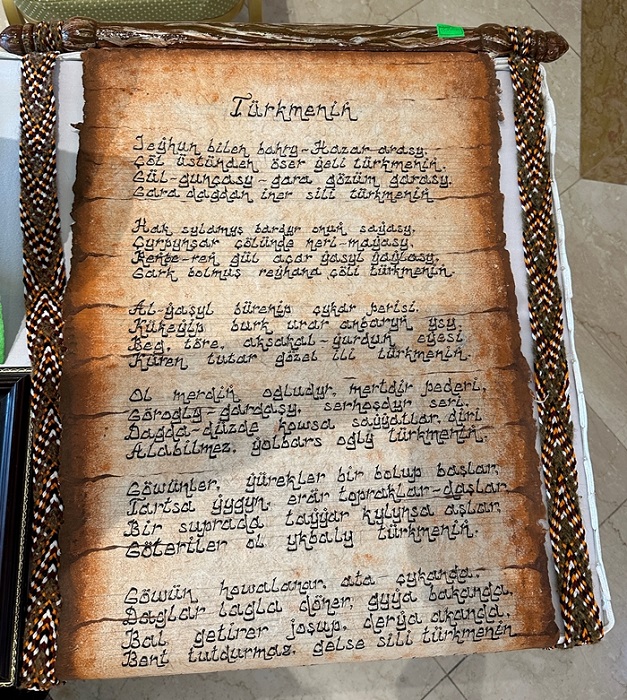 Türkmeniň
Jeýhun bilen bahry-Hazar arasy,
Çöl üstünden öser ýeli türkmeniň.
Gül-gunçasy-gara gözüm garasy,
Gara dagdan iner sili türkmeniň.
Hak sylamyş bardyr onuň saýasy,
Çyrpynşar çölünde neri-maýasy,
Reňbe-reň gül açar ýaşyl ýaýlasy,
Gark bolmuş reýhana çöli türkmeniň.
Al-ýaşyl bürenip çykar perisi.
Kükeýip burk urar anbaryň ysy.
Beg, töre, aksakal-ýurduň eýesi
Küren tutar gözel ili türkmeniň.
Ol merdiň ogludyr, mertdir pederi,
Görogly-gardaşy, serhoşdyr seri.
Dagda-düzde kowsa saýýatlar, diri
Alabilmez, ýolbars ogly türkmeniň.
Göwünler, ýürekler bir bolup başlar,
Tartsa ýygyn, erär topraklar-daşlar
Bir suprada taýýar kylynsa aşlar,
Göteriler ol ykbaly türkmeniň.
Göwün howalanar, ata çykanda,
Daglar lagla döner, gyýa bakanda,
Bal getirer joşup, derýa akanda,
Bent tutdurmaz, gelse sili türkmeniň